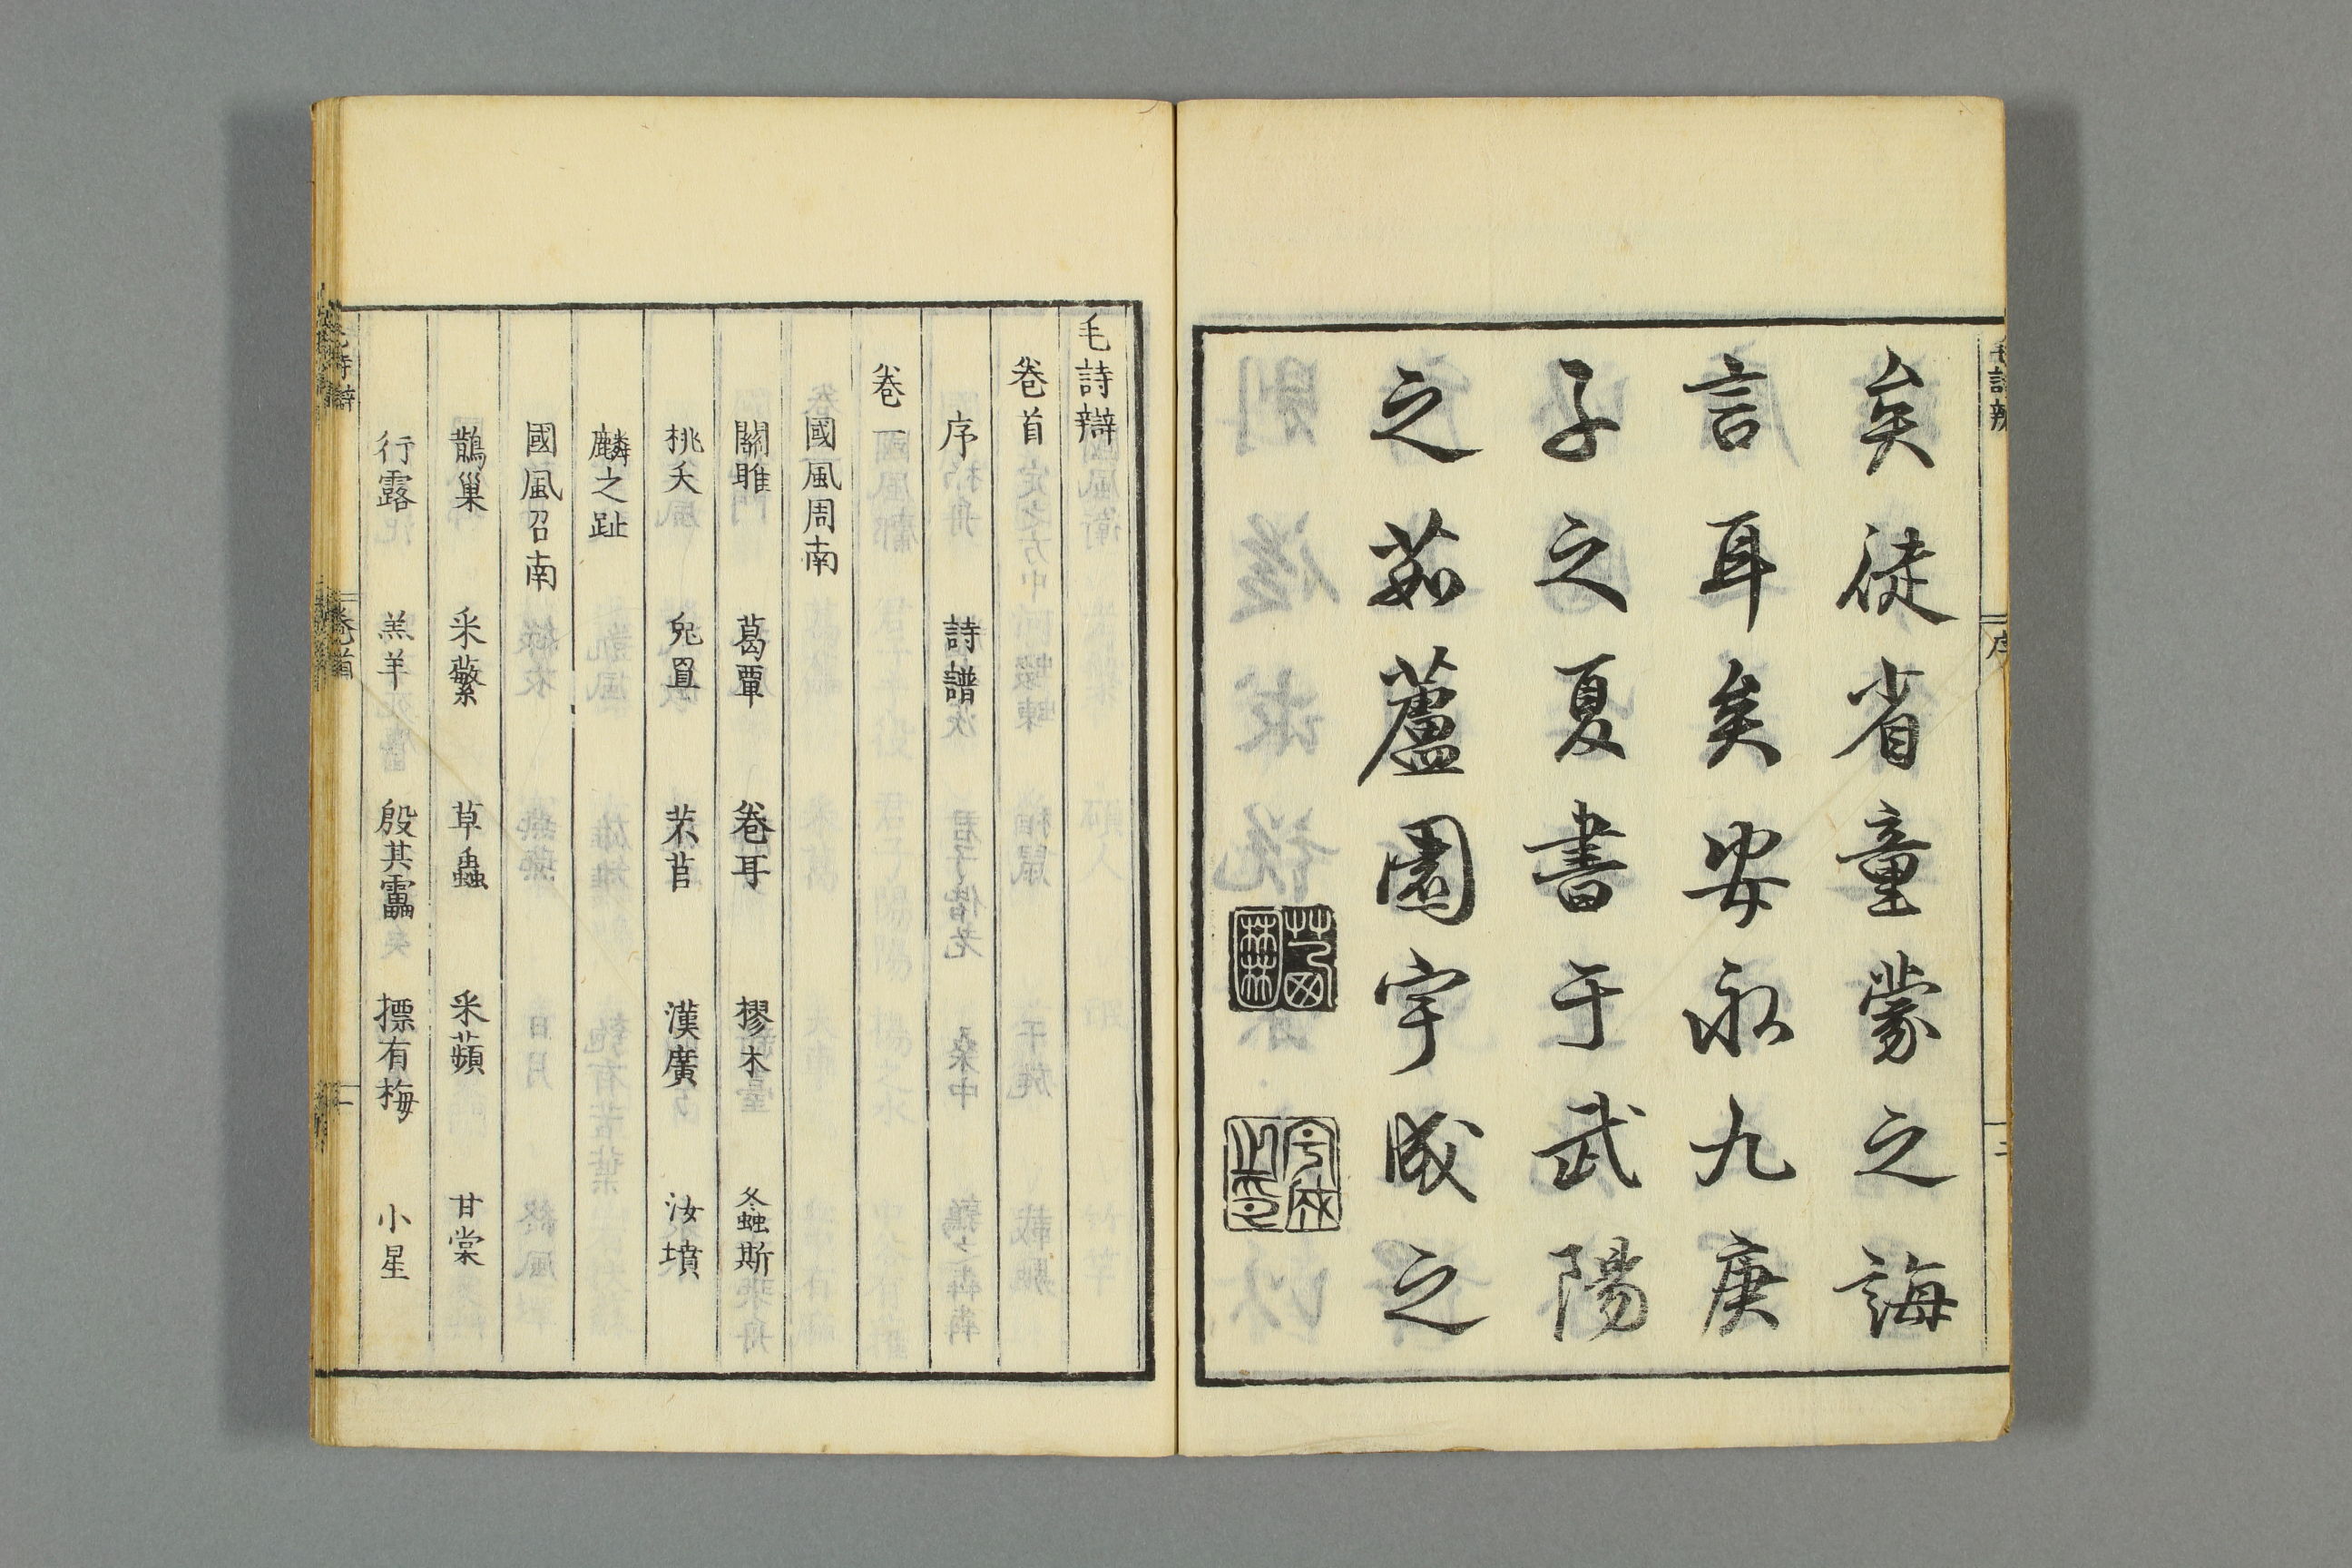 毛詩辨
序
二
矣徒省童蒙之誨
言耳矣安永九庚
子之夏書于武陽
之茹蘆園宇成之
毛詩辯
卷首
序 詩譜
卷一
國風周南
關雎 葛覃 卷耳 樛木 螽斯
桃夭 兔罝 芣苢 漢廣 汝墳
麟之趾
國風召南
鵲巢 采蘩 草蟲 采蘋 甘棠
行露 羔羊 殷其靁 摽有梅 小星
毛詩辯
卷首
一